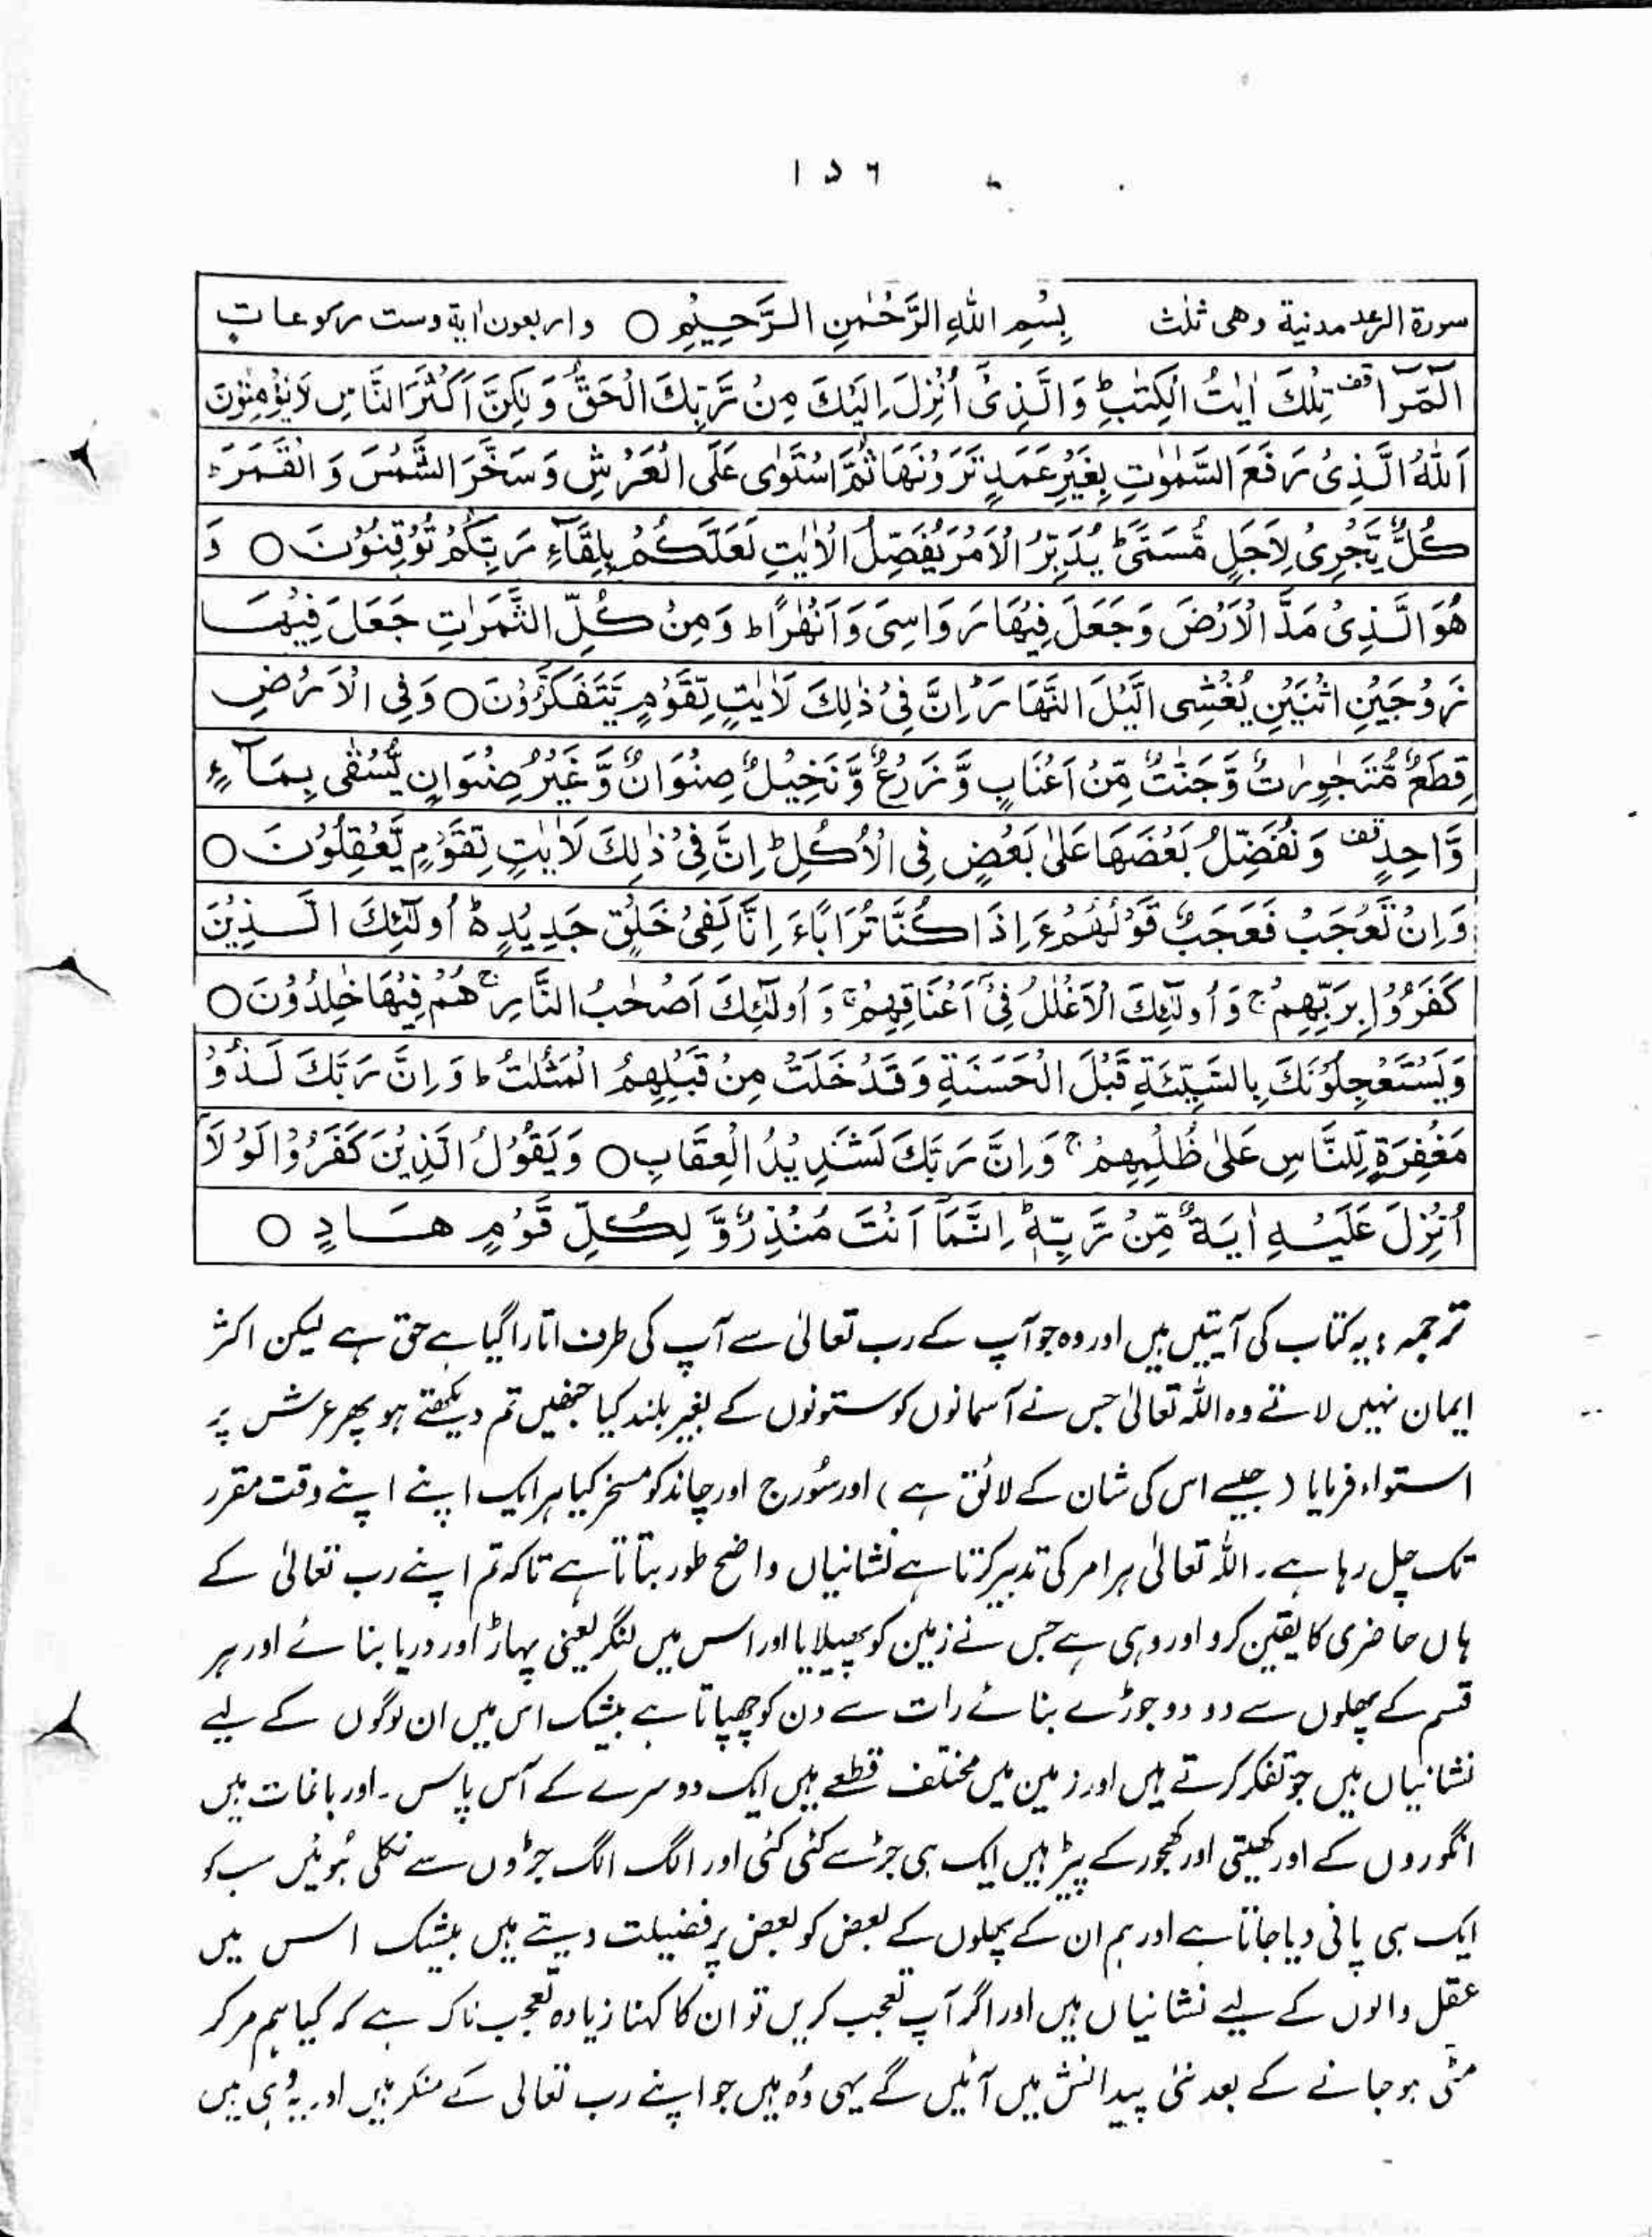 ۱۵۶
سورة الرعد مدنية وهی ثلث بِسْمِ اللهِ الرَّحْمٰنِ الرَّحِيْمِ ○ واربعون اٰية وست ركوعات
الٓمّٓرٰ قف تِلْكَ اٰيٰتُ الْكِتٰبِ ؕ وَالَّذِیْٓ اُنْزِلَ اِلَيْكَ مِنْ رَّبِّكَ الْحَقُّ وَلٰكِنَّ اَكْثَرَ النَّاسِ لَا يُؤْمِنُوْنَ
اَللّٰهُ الَّذِیْ رَفَعَ السَّمٰوٰتِ بِغَيْرِ عَمَدٍ تَرَوْنَهَا ثُمَّ اسْتَوٰى عَلَى الْعَرْشِ وَسَخَّرَ الشَّمْسَ وَالْقَمَرَ ؕ
كُلٌّ يَّجْرِیْ لِاَجَلٍ مُّسَمًّى ؕ يُدَبِّرُ الْاَمْرَ يُفَصِّلُ الْاٰيٰتِ لَعَلَّكُمْ بِلِقَآءِ رَبِّكُمْ تُوْقِنُوْنَ ○ وَ
هُوَ الَّذِیْ مَدَّ الْاَرْضَ وَجَعَلَ فِيْهَا رَوَاسِیَ وَاَنْهٰرًا ؕ وَمِنْ كُلِّ الثَّمَرٰتِ جَعَلَ فِيْهَا
زَوْجَيْنِ اثْنَيْنِ يُغْشِی الَّيْلَ النَّهَارَ ؕ اِنَّ فِیْ ذٰلِكَ لَاٰيٰتٍ لِّقَوْمٍ يَّتَفَكَّرُوْنَ ○ وَفِی الْاَرْضِ
قِطَعٌ مُّتَجٰوِرٰتٌ وَّجَنّٰتٌ مِّنْ اَعْنَابٍ وَّزَرْعٌ وَّنَخِيْلٌ صِنْوَانٌ وَّغَيْرُ صِنْوَانٍ يُّسْقٰى بِمَآءٍ
وَّاحِدٍ قف وَنُفَضِّلُ بَعْضَهَا عَلٰى بَعْضٍ فِی الْاُكُلِ ؕ اِنَّ فِیْ ذٰلِكَ لَاٰيٰتٍ لِّقَوْمٍ يَّعْقِلُوْنَ ○
وَاِنْ تَعْجَبْ فَعَجَبٌ قَوْلُهُمْ ءَاِذَا كُنَّا تُرَابًا ءَاِنَّا لَفِیْ خَلْقٍ جَدِيْدٍ ؕ اُولٰٓئِكَ الَّذِيْنَ
كَفَرُوْا بِرَبِّهِمْ ج وَاُولٰٓئِكَ الْاَغْلٰلُ فِیْٓ اَعْنَاقِهِمْ ج وَاُولٰٓئِكَ اَصْحٰبُ النَّارِ ج هُمْ فِيْهَا خٰلِدُوْنَ ○
وَيَسْتَعْجِلُوْنَكَ بِالسَّيِّئَةِ قَبْلَ الْحَسَنَةِ وَقَدْ خَلَتْ مِنْ قَبْلِهِمُ الْمَثُلٰتُ ؕ وَاِنَّ رَبَّكَ لَذُوْ
مَغْفِرَةٍ لِّلنَّاسِ عَلٰى ظُلْمِهِمْ ج وَاِنَّ رَبَّكَ لَشَدِيْدُ الْعِقَابِ ○ وَيَقُوْلُ الَّذِيْنَ كَفَرُوْا لَوْلَآ
اُنْزِلَ عَلَيْهِ اٰيَةٌ مِّنْ رَّبِّهٖ ؕ اِنَّمَآ اَنْتَ مُنْذِرٌ وَّ لِكُلِّ قَوْمٍ هَادٍ ○
ترجمہ : یہ کتاب کی آیتیں ہیں اور وہ جو آپ کے رب تعالیٰ سے آپ کی طرف اتارا گیا ہے حق ہے لیکن اکثر
ایمان نہیں لاتے وہ اللہ تعالیٰ جس نے آسمانوں کو ستونوں کے بغیر بلند کیا جنھیں تم دیکھتے ہو پھر عرش پر
استواء فرمایا ( جیسے اس کی شان کے لائق ہے ) اور سُورج اور چاند کو مسخر کیا ہر ایک اپنے اپنے وقت مقرر
تک چل رہا ہے ۔ اللہ تعالیٰ ہر امر کی تدبیر کرتا ہے نشانیاں واضح طور بتاتا ہے تاکہ تم اپنے رب تعالیٰ کے
ہاں حاضری کا یقین کرو اور وہی ہے جس نے زمین کو پھیلایا اور اس میں لنگر یعنی پہاڑ اور دریا بنائے اور ہر
قسم کے پھلوں سے دو دو جوڑے بنائے رات سے دن کو چھپاتا ہے بیشک اس میں ان لوگوں کے لیے
نشانیاں ہیں جو تفکر کرتے ہیں اور زمین میں مختلف قطعے ہیں ایک دوسرے کے آس پاس ۔ اور باغات ہیں
انگوروں کے اور کھیتی اور کھجور کے پیڑ ہیں ایک ہی جڑ سے کئی کئی اور الگ الگ جڑوں سے نکلی ہُوئیں سب کو
ایک ہی پانی دیا جاتا ہے اور ہم ان کے پھلوں کے بعض کو بعض پر فضیلت دیتے ہیں بیشک اس میں
عقل والوں کے لیے نشانیاں ہیں اور اگر آپ تعجب کریں تو ان کا کہنا زیادہ تعجب ناک ہے کہ کیا ہم مر کر
مٹی ہو جانے کے بعد نئی پیدائش میں آئیں گے یہی وُہ ہیں جو اپنے رب تعالیٰ کے منکر ہیں اور یہ وُہی ہیں